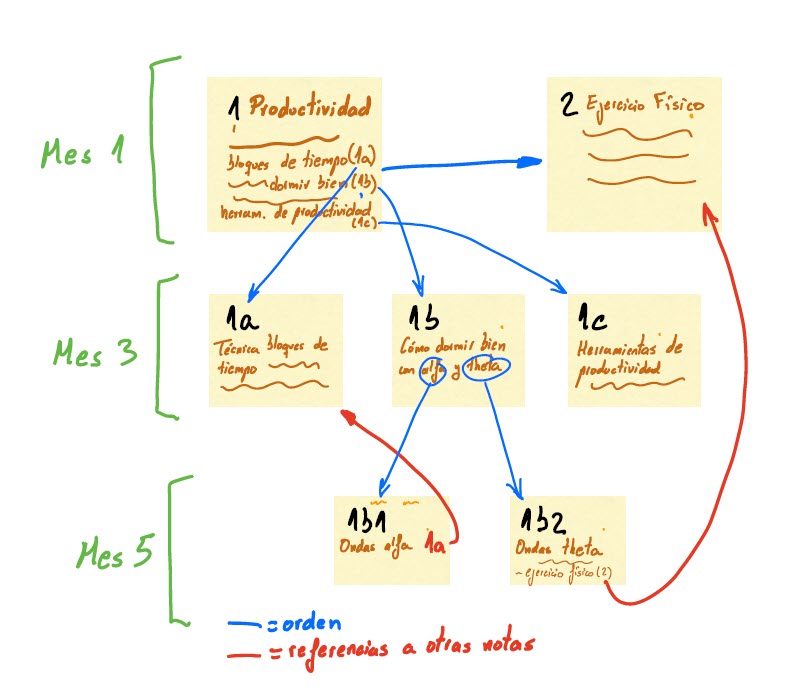 Mes 1
1 Productividad
bloques de tiempo (1a)
dormir bien (1b)
herram. de productividad
(1c)
2 Ejercicio Físico
Mes 3
1a
Técnica bloques de
tiempo
1b
Cómo dormir bien
con alfa y theta
1c
Herramientas de
productividad
Mes 5
1b1
Ondas alfa 1a
1b2
Ondas theta
- ejercicio físico (2)
= orden
= referencias a otras notas